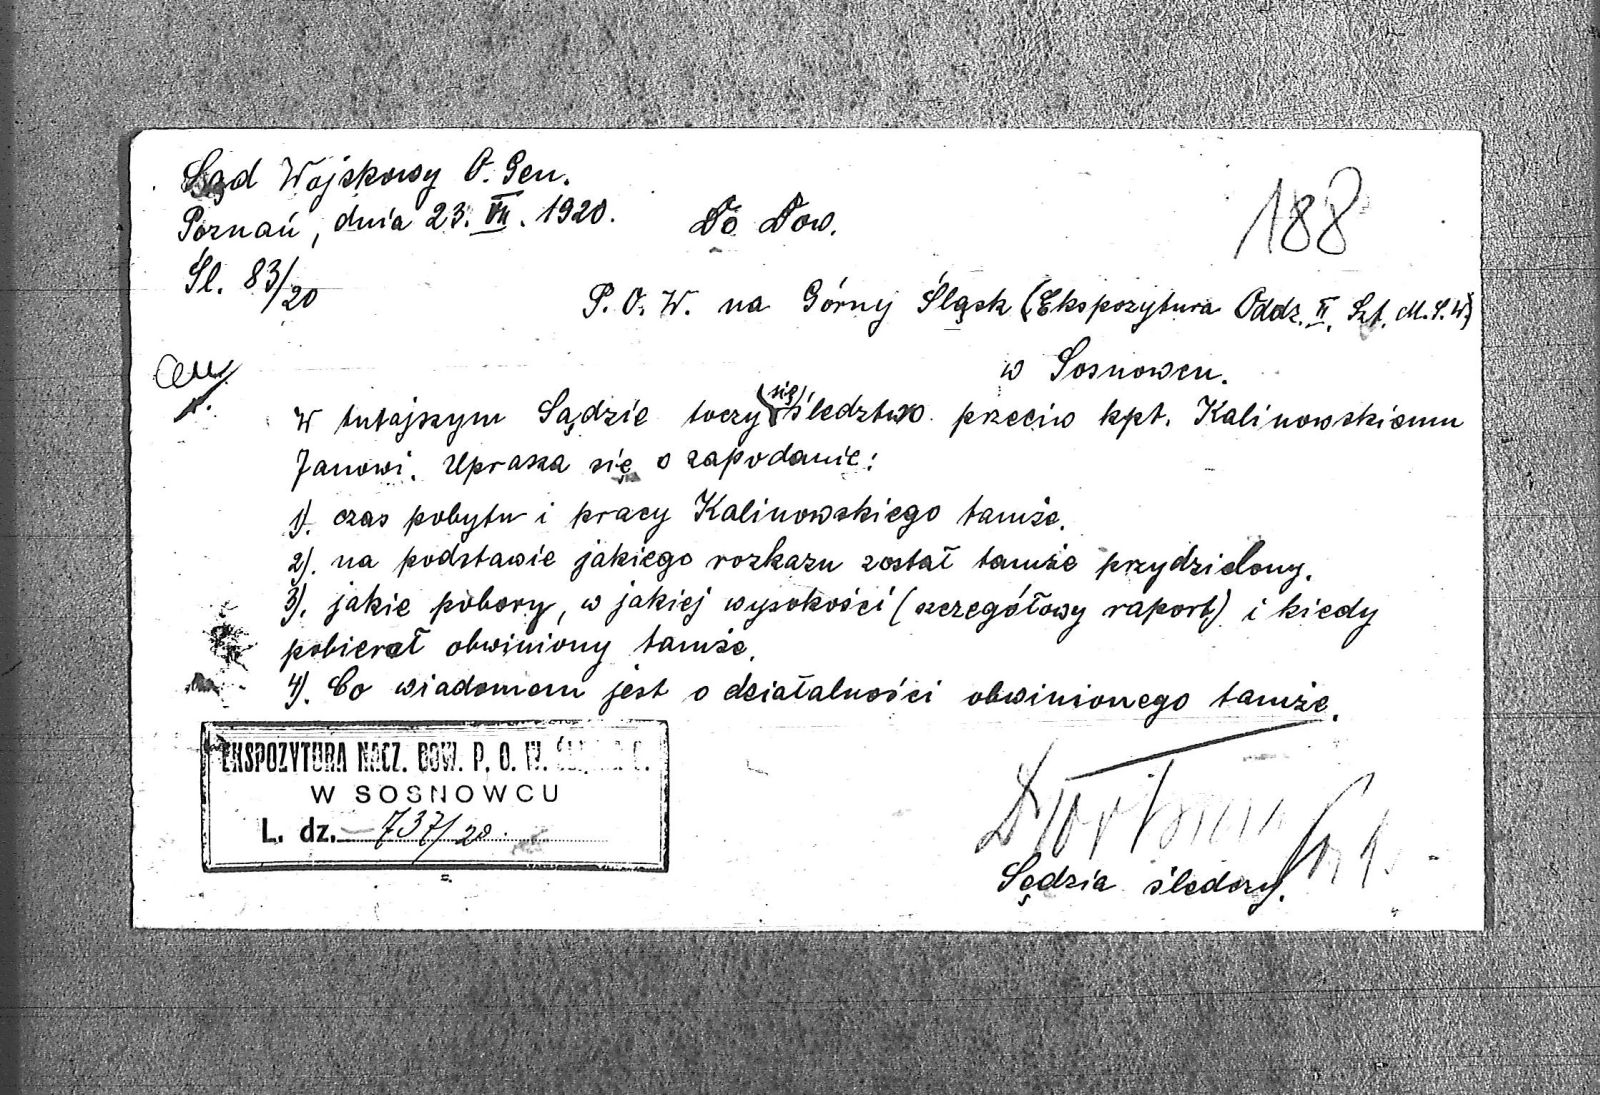 Sąd Wojskowy O. Gen.
Poznań, dnia 23. VII. 1920.
Do Dow.
188
Śl. 83/20
P. O. W. na Górny Śląsk (Ekspozytura Oddz. II. Szt. M. S. W.)
w Sosnowcu.
W tutajszym Sądzie toczy się śledztwo przeciw kpt. Kalinowskiemu
Janowi. Uprasza się o zapodanie:
1). czas pobytu i pracy Kalinowskiego tamże.
2). na podstawie jakiego rozkazu został tamże przydzielony.
3). jakie pobory, w jakiej wysokości (szczegółowy raport) i kiedy
pobierał obwiniony tamże.
4). Co wiadomem jest o działalności obwinionego tamże.
EKSPOZYTURA NACZ. DOW. P. O. W.
W SOSNOWCU
L. dz. 737/20.
Sędzia śledczy.